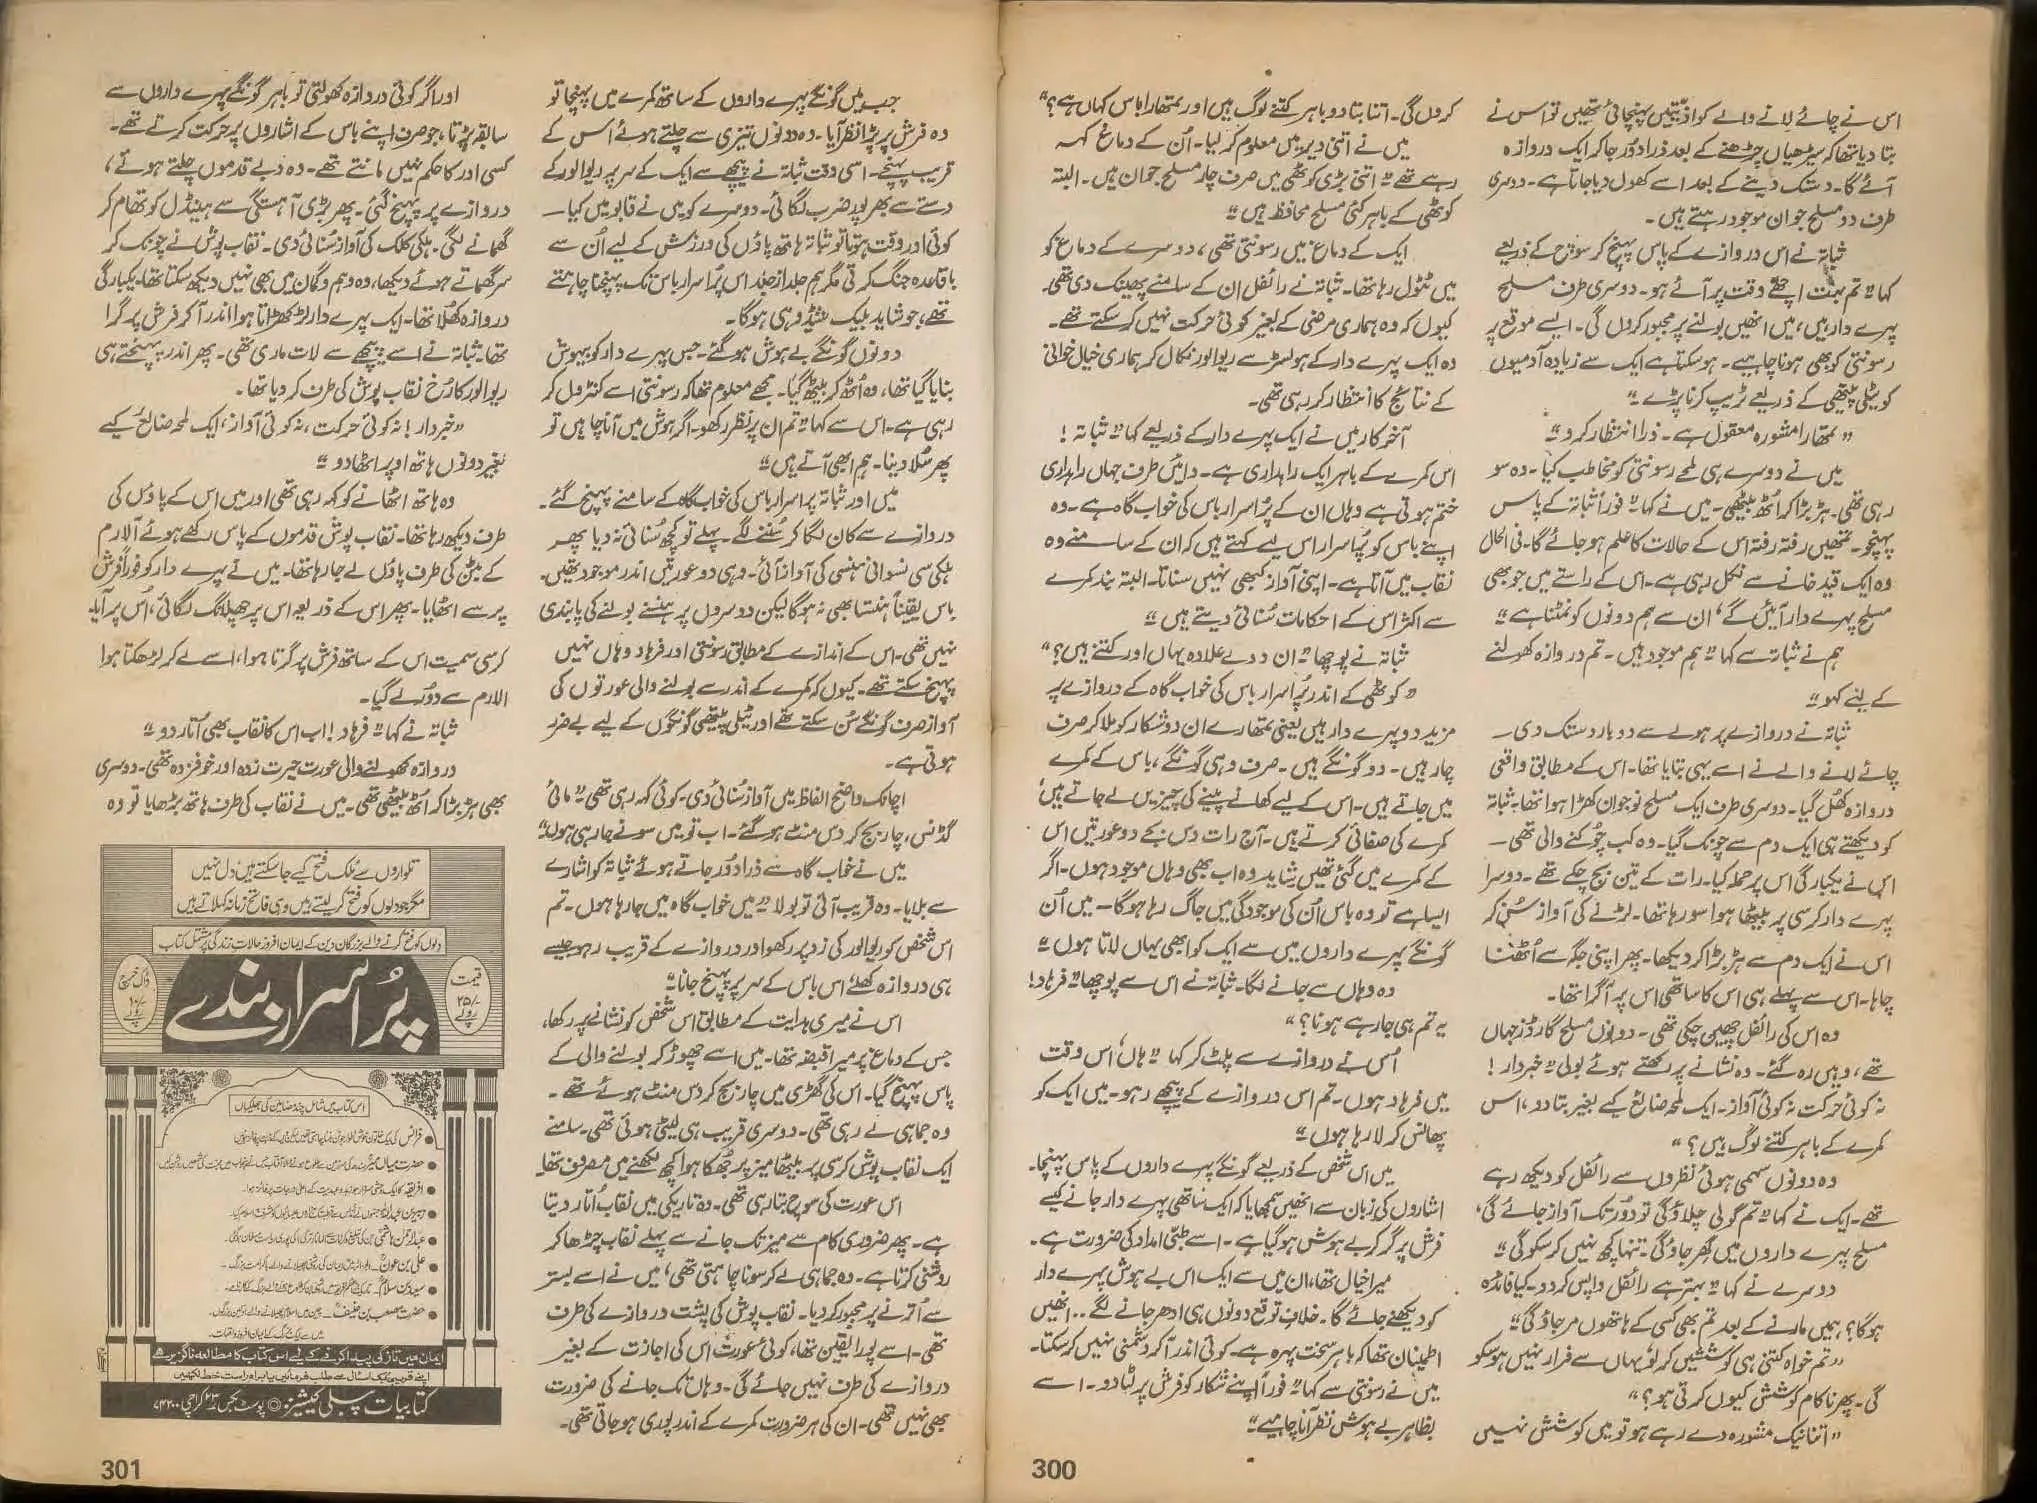 اس نے چائے لانے والے کو اذیتیں پہنچائی تھیں تو اس نے
بتا دیا تھا کہ سیڑھیاں چڑھنے کے بعد ذرا دور جا کر ایک دروازہ
آئے گا۔ دستک دینے کے بعد اسے کھول دیا جاتا ہے۔ دوسری
طرف دو مسلح جوان موجود رہتے ہیں۔
ثباتہ نے اس دروازے کے پاس پہنچ کر سوچ کے ذریعے
کہا "تم بہت اچھے وقت پر آئے ہو۔ دوسری طرف مسلح
پہرے دار ہیں، میں انھیں بولنے پر مجبور کروں گی۔ ایسے موقع پر
رسونتی کو بھی ہونا چاہیے۔ ہو سکتا ہے ایک سے زیادہ آدمیوں
کو ٹیلی پیتھی کے ذریعے ٹریپ کرنا پڑے"
"تمھارا مشورہ معقول ہے۔ ذرا انتظار کرو"
میں نے دوسرے ہی لمحے رسونتی کو مخاطب کیا۔ وہ سو
رہی تھی۔ ہڑبڑا کر اُٹھ بیٹھی۔ میں نے کہا "فوراً ثباتہ کے پاس
پہنچو۔ تمھیں رفتہ رفتہ اس کے حالات کا علم ہو جائے گا۔ فی الحال
وہ ایک قید خانے سے نکل رہی ہے۔ اس کے راستے میں جو بھی
مسلح پہرے دار آئیں گے، ان سے ہم دونوں کو نمٹنا ہے"
ہم نے ثباتہ سے کہا "ہم موجود ہیں۔ تم دروازہ کھولنے
کے لئے کہو"
ثباتہ نے دروازے پر ہولے سے دوبار دستک دی۔
چائے لانے والے نے اسے یہی بتایا تھا۔ اس کے مطابق واقعی
دروازہ کھل گیا۔ دوسری طرف ایک مسلح نوجوان کھڑا ہوا تھا۔ ثباتہ
کو دیکھتے ہی ایک دم سے چونک گیا۔ وہ کب چُوکنے والی تھی۔
اس نے یکبارگی اس پر حملہ کیا۔ رات کے تین بج چکے تھے۔ دوسرا
پہرے دار کرسی پر بیٹھا ہوا سو رہا تھا۔ لڑنے کی آواز سُن کر
اس نے ایک دم سے ہڑبڑا کر دیکھا۔ پھر اپنی جگہ سے اُٹھنا
چاہا۔ اس سے پہلے ہی اس کا ساتھی اس پر آ گرا تھا۔
وہ اس کی رائفل چھین چکی تھی۔ دونوں مسلح گارڈز جہاں
تھے، وہیں رہ گئے۔ وہ نشانے پر رکھتے ہوئے بولی "خبردار!
نہ کوئی حرکت نہ کوئی آواز۔ ایک لمحہ ضائع کیے بغیر بتا دو، اس
کمرے کے باہر کتنے لوگ ہیں؟"
وہ دونوں سہمی ہوئی نظروں سے رائفل کو دیکھ رہے
تھے۔ ایک نے کہا "تم گولی چلاؤگی تو دُور تک آواز جائے گی،
مسلح پہرے داروں میں گھر جاؤگی۔ تنہا کچھ نہیں کر سکوگی"
دوسرے نے کہا "بہتر ہے رائفل واپس کر دو۔ کیا فائدہ
ہوگا؟ ہمیں مارنے کے بعد تم بھی کسی کے ہاتھوں مر جاؤگی"
"تم خواہ کتنی ہی کوششیں کر لو، یہاں سے فرار نہیں ہو سکو
گی۔ پھر ناکام کوشش کیوں کرتی ہو؟"
"اتنا نیک مشورہ دے رہے ہو تو میں کوشش نہیں
کروں گی۔ اتنا بتا دو باہر کتنے لوگ ہیں اور تمھارا باس کہاں ہے؟"
میں نے اتنی دیر میں معلوم کر لیا۔ اُن کے دماغ کہہ
رہے تھے "اتنی بڑی کوٹھی میں صرف چار مسلح جوان ہیں۔ البتہ
کوٹھی کے باہر کئی مسلح محافظ ہیں"
ایک کے دماغ میں رسونتی تھی، دوسرے کے دماغ کو
میں ٹٹول رہا تھا۔ ثباتہ نے رائفل ان کے سامنے پھینک دی تھی۔
کیوں کہ وہ ہماری مرضی کے بغیر کوئی حرکت نہیں کر سکتے تھے۔
وہ ایک پہرے دار کے ہولسٹر سے ریوالور نکال کر ہماری خیال خوانی
کے نتائج کا انتظار کر رہی تھی۔
آخر کار میں نے ایک پہرے دار کے ذریعے کہا "ثباتہ!
اس کمرے کے باہر ایک راہداری ہے۔ دائیں طرف جہاں راہداری
ختم ہوتی ہے وہاں ان کے پُراسرار باس کی خواب گاہ ہے۔ وہ
اپنے باس کو پُراسرار اس لیے کہتے ہیں کہ ان کے سامنے وہ
نقاب میں آتا ہے۔ اپنی آواز کبھی نہیں سناتا۔ البتہ بند کمرے
سے اکثر اس کے احکامات سُنائی دیتے ہیں"
ثباتہ نے پوچھا "ان دو کے علاوہ یہاں اور کتنے ہیں؟"
"کوٹھی کے اندر پُراسرار باس کی خواب گاہ کے دروازے پر
مزید دو پہرے دار ہیں یعنی تمھارے ان دو شکار کو ملا کر صرف
چار ہیں۔ دو گونگے ہیں۔ صرف وہی گونگے، باس کے کمرے
میں جاتے ہیں۔ اس کے لیے کھانے پینے کی چیزیں لے جاتے ہیں،
کمرے کی صفائی کرتے ہیں۔ آج رات دس بجے دو عورتیں اس
کے کمرے میں گئی تھیں۔ شاید وہ اب بھی وہاں موجود ہوں۔ اگر
ایسا ہے تو وہ باس اُن کی موجودگی میں جاگ رہا ہوگا۔ میں اُن
گونگے پہرے داروں میں سے ایک کو ابھی یہاں لاتا ہوں"
وہ وہاں سے جانے لگا۔ ثباتہ نے اس سے پوچھا "فرہاد!
یہ تم ہی جا رہے ہونا؟"
اُس نے دروازے سے پلٹ کر کہا "ہاں، اس وقت
میں فرہاد ہوں۔ تم اس دروازے کے پیچھے رہو۔ میں ایک کو
پھانس کر لا رہا ہوں"
میں اس شخص کے ذریعے گونگے پہرے داروں کے پاس پہنچا۔
اشاروں کی زبان سے انھیں سمجھایا کہ ایک ساتھی پہرے دار جانے کیسے
فرش پر گر کر بے ہوش ہو گیا ہے۔ اسے طبّی امداد کی ضرورت ہے۔
میرا خیال تھا، ان میں سے ایک اس بے ہوش پہرے دار
کو دیکھنے جائے گا۔ خلافِ توقع دونوں ہی ادھر جانے لگے.. انھیں
اطمینان تھا کہ باہر سخت پہرہ ہے۔ کوئی اندر آکر دشمنی نہیں کر سکتا۔
میں نے رسونتی سے کہا "فوراً اپنے شکار کو فرش پر لٹا دو۔ اسے
بظاہر بے ہوش نظر آنا چاہیے"
300
جب میں گونگے پہرے داروں کے ساتھ کمرے میں پہنچا تو
وہ فرش پر پڑا نظر آیا۔ وہ دونوں تیزی سے چلتے ہوئے اس کے
قریب پہنچے۔ اسی وقت ثباتہ نے پیچھے سے ایک کے سر پر ریوالور کے
دستے سے بھرپور ضرب لگائی۔ دوسرے کو میں نے قابو میں کیا۔
کوئی اور وقت ہوتا تو ثباتہ ہاتھ پاؤں کی ورزش کے لیے اُن سے
باقاعدہ جنگ کرتی مگر ہم جلد از جلد اس پُراسرار باس تک پہنچنا چاہتے
تھے، جو شاید بلیک شیڈو ہی ہوگا۔
دونوں گونگے بے ہوش ہو گئے۔ جس پہرے دار کو بیہوش
بنایا گیا تھا، وہ اُٹھ کر بیٹھ گیا۔ مجھے معلوم تھا کہ رسونتی اسے کنٹرول کر
رہی ہے۔ اس سے کہا "تم ان پر نظر رکھو۔ اگر ہوش میں آنا چاہیں تو
پھر سُلا دینا۔ ہم ابھی آتے ہیں"
میں اور ثباتہ پراسرار باس کی خواب گاہ کے سامنے پہنچ گئے۔
دروازے سے کان لگا کر سُننے لگے۔ پہلے تو کچھ سُنائی نہ دیا پھر
ہلکی سی نسوانی ہنسی کی آواز آئی۔ وہی دو عورتیں اندر موجود تھیں۔
باس یقیناً ہنستا بھی نہ ہوگا لیکن دوسروں پر ہنسنے بولنے کی پابندی
نہیں تھی۔ اس کے اندازے کے مطابق رسونتی اور فرہاد وہاں نہیں
پہنچ سکتے تھے۔ کیوں کہ کمرے کے اندر سے بولنے والی عورتوں کی
آواز صرف گونگے سُن سکتے تھے اور ٹیلی پیتھی گونگوں کے لیے بے ضرر
ہوتی ہے۔
اچانک واضح الفاظ میں آواز سُنائی دی۔ کوئی کہہ رہی تھی "مائی
گڈنس، چار بج کر دس منٹ ہو گئے۔ اب تو میں سونے جا رہی ہوں"
میں نے خواب گاہ سے ذرا دُور جاتے ہوئے ثباتہ کو اشارے
سے بلایا۔ وہ قریب آئی تو بولا "میں خواب گاہ میں جا رہا ہوں۔ تم
اس شخص کو ریوالور کی زد پر رکھو اور دروازے کے قریب رہو جیسے
ہی دروازہ کھلے، اس باس کے سر پر پہنچ جانا"
اس نے میری ہدایت کے مطابق اس شخص کو نشانے پر رکھا،
جس کے دماغ پر میرا قبضہ تھا۔ میں اسے چھوڑ کر بولنے والی کے
پاس پہنچ گیا۔ اس کی گھڑی میں چار بج کر دس منٹ ہوئے تھے۔
وہ جماہی لے رہی تھی۔ دوسری قریب ہی لیٹی ہوئی تھی۔ سامنے
ایک نقاب پوش کرسی پر بیٹھا میز پر جُھکا ہوا کچھ لکھنے میں مصروف تھا۔
اس عورت کی سوچ بتا رہی تھی۔ وہ تاریکی میں نقاب اُتار دیتا
ہے۔ پھر ضروری کام سے میز تک جانے سے پہلے نقاب چڑھا کر
روشنی کرتا ہے۔ وہ جماہی لے کر سونا چاہتی تھی، میں نے اسے بستر
سے اُترنے پر مجبور کر دیا۔ نقاب پوش کی پشت دروازے کی طرف
تھی۔ اسے پورا یقین تھا، کوئی عورت اس کی اجازت کے بغیر
دروازے کی طرف نہیں جائے گی۔ وہاں تک جانے کی ضرورت
بھی نہیں تھی۔ ان کی ہر ضرورت کمرے کے اندر پوری ہو جاتی تھی۔
اور اگر کوئی دروازہ کھولتی تو باہر گونگے پہرے داروں سے
سابقہ پڑتا، جو صرف اپنے باس کے اشاروں پر حرکت کرتے تھے۔
کسی اور کا حکم نہیں مانتے تھے۔ وہ دبے قدموں چلتے ہوئے،
دروازے پر پہنچ گئی۔ پھر بڑی آہستگی سے ہینڈل کو تھام کر
گھمانے لگی۔ ہلکی کلک کی آواز سُنائی دی۔ نقاب پوش نے چونک کر
سر گھماتے ہوئے دیکھا، وہ وہم و گمان میں بھی نہیں دیکھ سکتا تھا۔ یکبارگی
دروازہ کُھلا تھا۔ ایک پہرے دار لڑکھڑاتا ہوا اندر آکر فرش پر گرا
تھا۔ ثباتہ نے اسے پیچھے سے لات ماری تھی۔ پھر اندر پہنچتے ہی
ریوالور کا رُخ نقاب پوش کی طرف کر دیا تھا۔
"خبردار! نہ کوئی حرکت، نہ کوئی آواز، ایک لمحہ ضائع کیے
بغیر دونوں ہاتھ اوپر اٹھا دو"
وہ ہاتھ اٹھانے کو کہہ رہی تھی اور میں اس کے پاؤں کی
طرف دیکھ رہا تھا۔ نقاب پوش قدموں کے پاس رکھے ہوئے آلارم
کے بٹن کی طرف پاؤں لے جا رہا تھا۔ میں نے پہرے دار کو فوراً فرش
پر سے اٹھایا۔ پھر اس کے ذریعہ اس پر چھلانگ لگائی، اُس پر آیا۔
کرسی سمیت اس کے ساتھ فرش پر گرتا ہوا، اسے لے کر لڑھکتا ہوا
الارم سے دُور لے گیا۔
ثباتہ نے کہا "فرہاد! اب اس کا نقاب بھی اُتار دو"
دروازہ کھولنے والی عورت حیرت زدہ اور خوفزدہ تھی۔ دوسری
بھی ہڑبڑا کر اُٹھ بیٹھی تھی۔ میں نے نقاب کی طرف ہاتھ بڑھایا تو وہ
تلواروں سے ملک فتح کیے جا سکتے ہیں دل نہیں
مگر جو دلوں کو فتح کر لیتے ہیں وہی فاتح زمانہ کہلاتے ہیں
دلوں کو فتح کرنے والے بزرگان دین کے ایمان افروز حالات زندگی پر مشتمل کتاب
قیمت ۲۵/- روپے
پُراسرار بندے
ڈاک خرچ ۱۰/- روپے
اس کتاب میں شامل چند مضامین کی جھلکیاں
ایمان میں تازگی پیدا کرنے کے لیے اس کتاب کا مطالعہ ناگزیر ہے
اپنے قریبی بک اسٹال سے طلب فرمائیں یا براہ راست خط لکھیں
کتابیات پبلی کیشنز پوسٹ بکس ۲۳ کراچی ۷۴۲۰۰
301